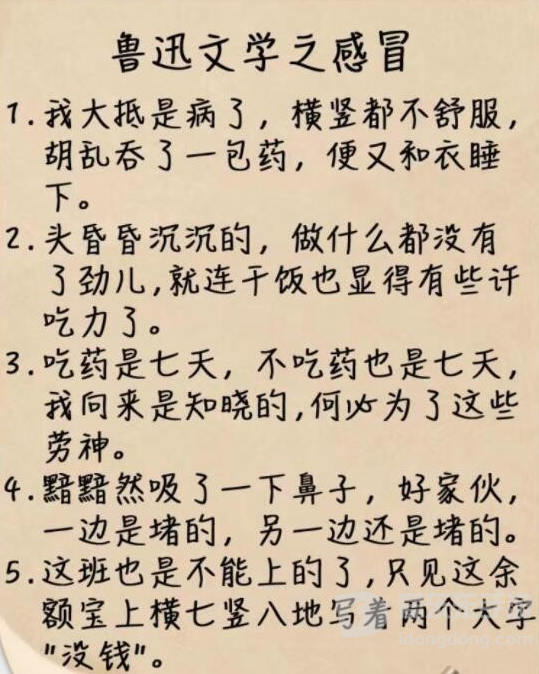 鲁迅文学之感冒
1.我大抵是病了，横竖都不舒服，
胡乱吞了一包药，便又和衣睡
下。
2.头昏昏沉沉的，做什么都没有
了劲儿,就连干饭也显得有些许
吃力了。
3.吃药是七天，不吃药也是七天，
我向来是知晓的,何必为了这些
劳神。
4.黯黯然吸了一下鼻子，好家伙，
一边是堵的，另一边还是堵的。
5.这班也是不能上的了,只见这余
额宝上横七竖八地写着两个大字
"没钱"。